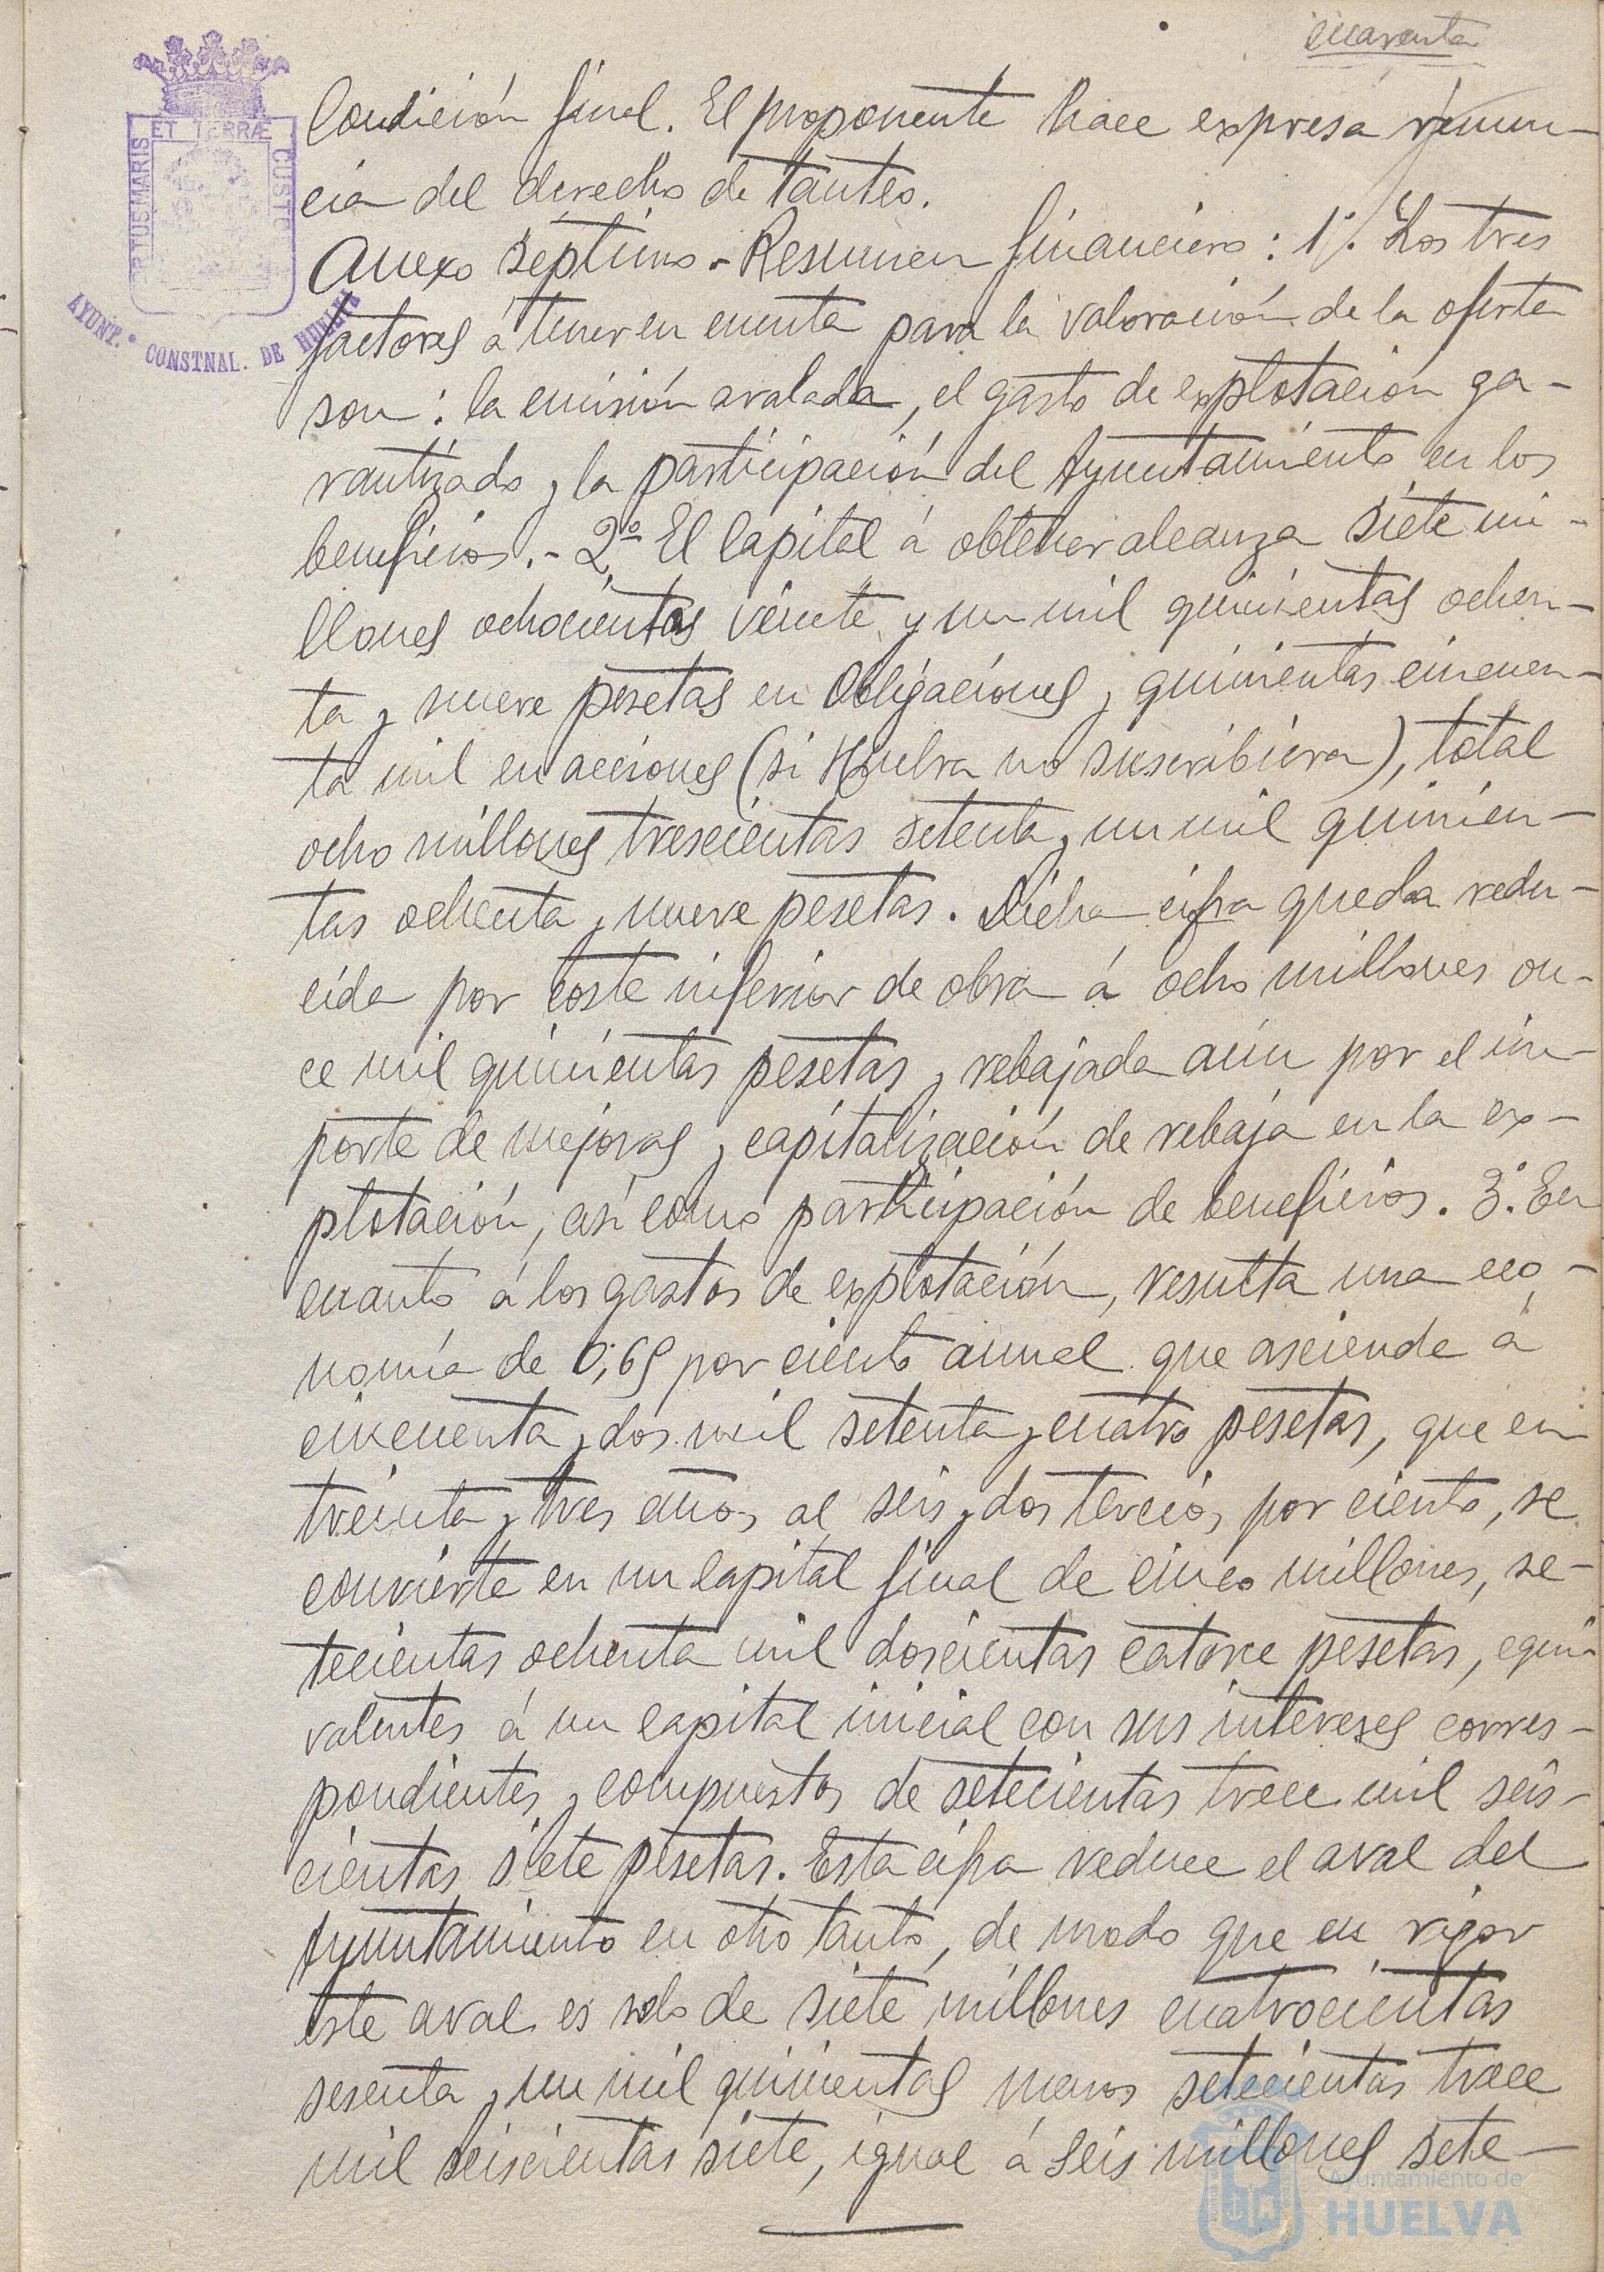 cuarenta
ET TERRÆ
PORTUS MARIS
CUSTO
AYUNT.º CONSTNAL. DE HUELVA
Condición final. El proponente hace expresa renun-
cia del derecho de tanteo.
Anexo séptimo.- Resumen financiero: 1º. Los tres
factores á tener en cuenta para la valoración de la oferta
son: la emisión avalada, el gasto de explotación ga-
rantizado y la participación del Ayuntamiento en los
beneficios.- 2º El Capital á obtener alcanza siete mi-
llones ochocientas veinte y un mil quinientas ochen-
ta y nueve pesetas en Obligaciones y quinientas cincuen-
ta mil en acciones (si Huelva no suscribiera), total
ocho millones trescientas setenta y un mil quinien-
tas ochenta y nueve pesetas. Dicha cifra queda redu-
cida por coste inferior de obra á ocho millones on-
ce mil quinientas pesetas y rebajada aún por el im-
porte de mejoras y capitalización de rebaja en la ex-
plotación, así como participación de beneficios. 3º. En
cuanto á los gastos de explotación, resulta una eco-
nomía de 0,65 por ciento anual que asciende á
cincuenta y dos mil setenta y cuatro pesetas, que en
treinta y tres años al seis y dos tercios por ciento, se
convierte en un capital final de cinco millones, se-
tecientas ochenta mil doscientas catorce pesetas, equi
valentes á un capital inicial con sus intereses corres-
pondientes y compuestos de setecientas trece mil seis-
cientas siete pesetas. Esta cifra reduce el aval del
Ayuntamiento en otro tanto, de modo que en rigor
este aval es solo de siete millones cuatrocientas
sesenta y un mil quinientas menos setecientas trece
mil seiscientas siete, igual á seis millones sete-
Ayuntamiento de
HUELVA